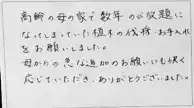 高齢の母の家で数年のび放題に
なってしまっていた植木の伐採・お手入れ
をお願いしました。
母からの急な追加のお願いにも快く
応じていただき、ありがとうございました。